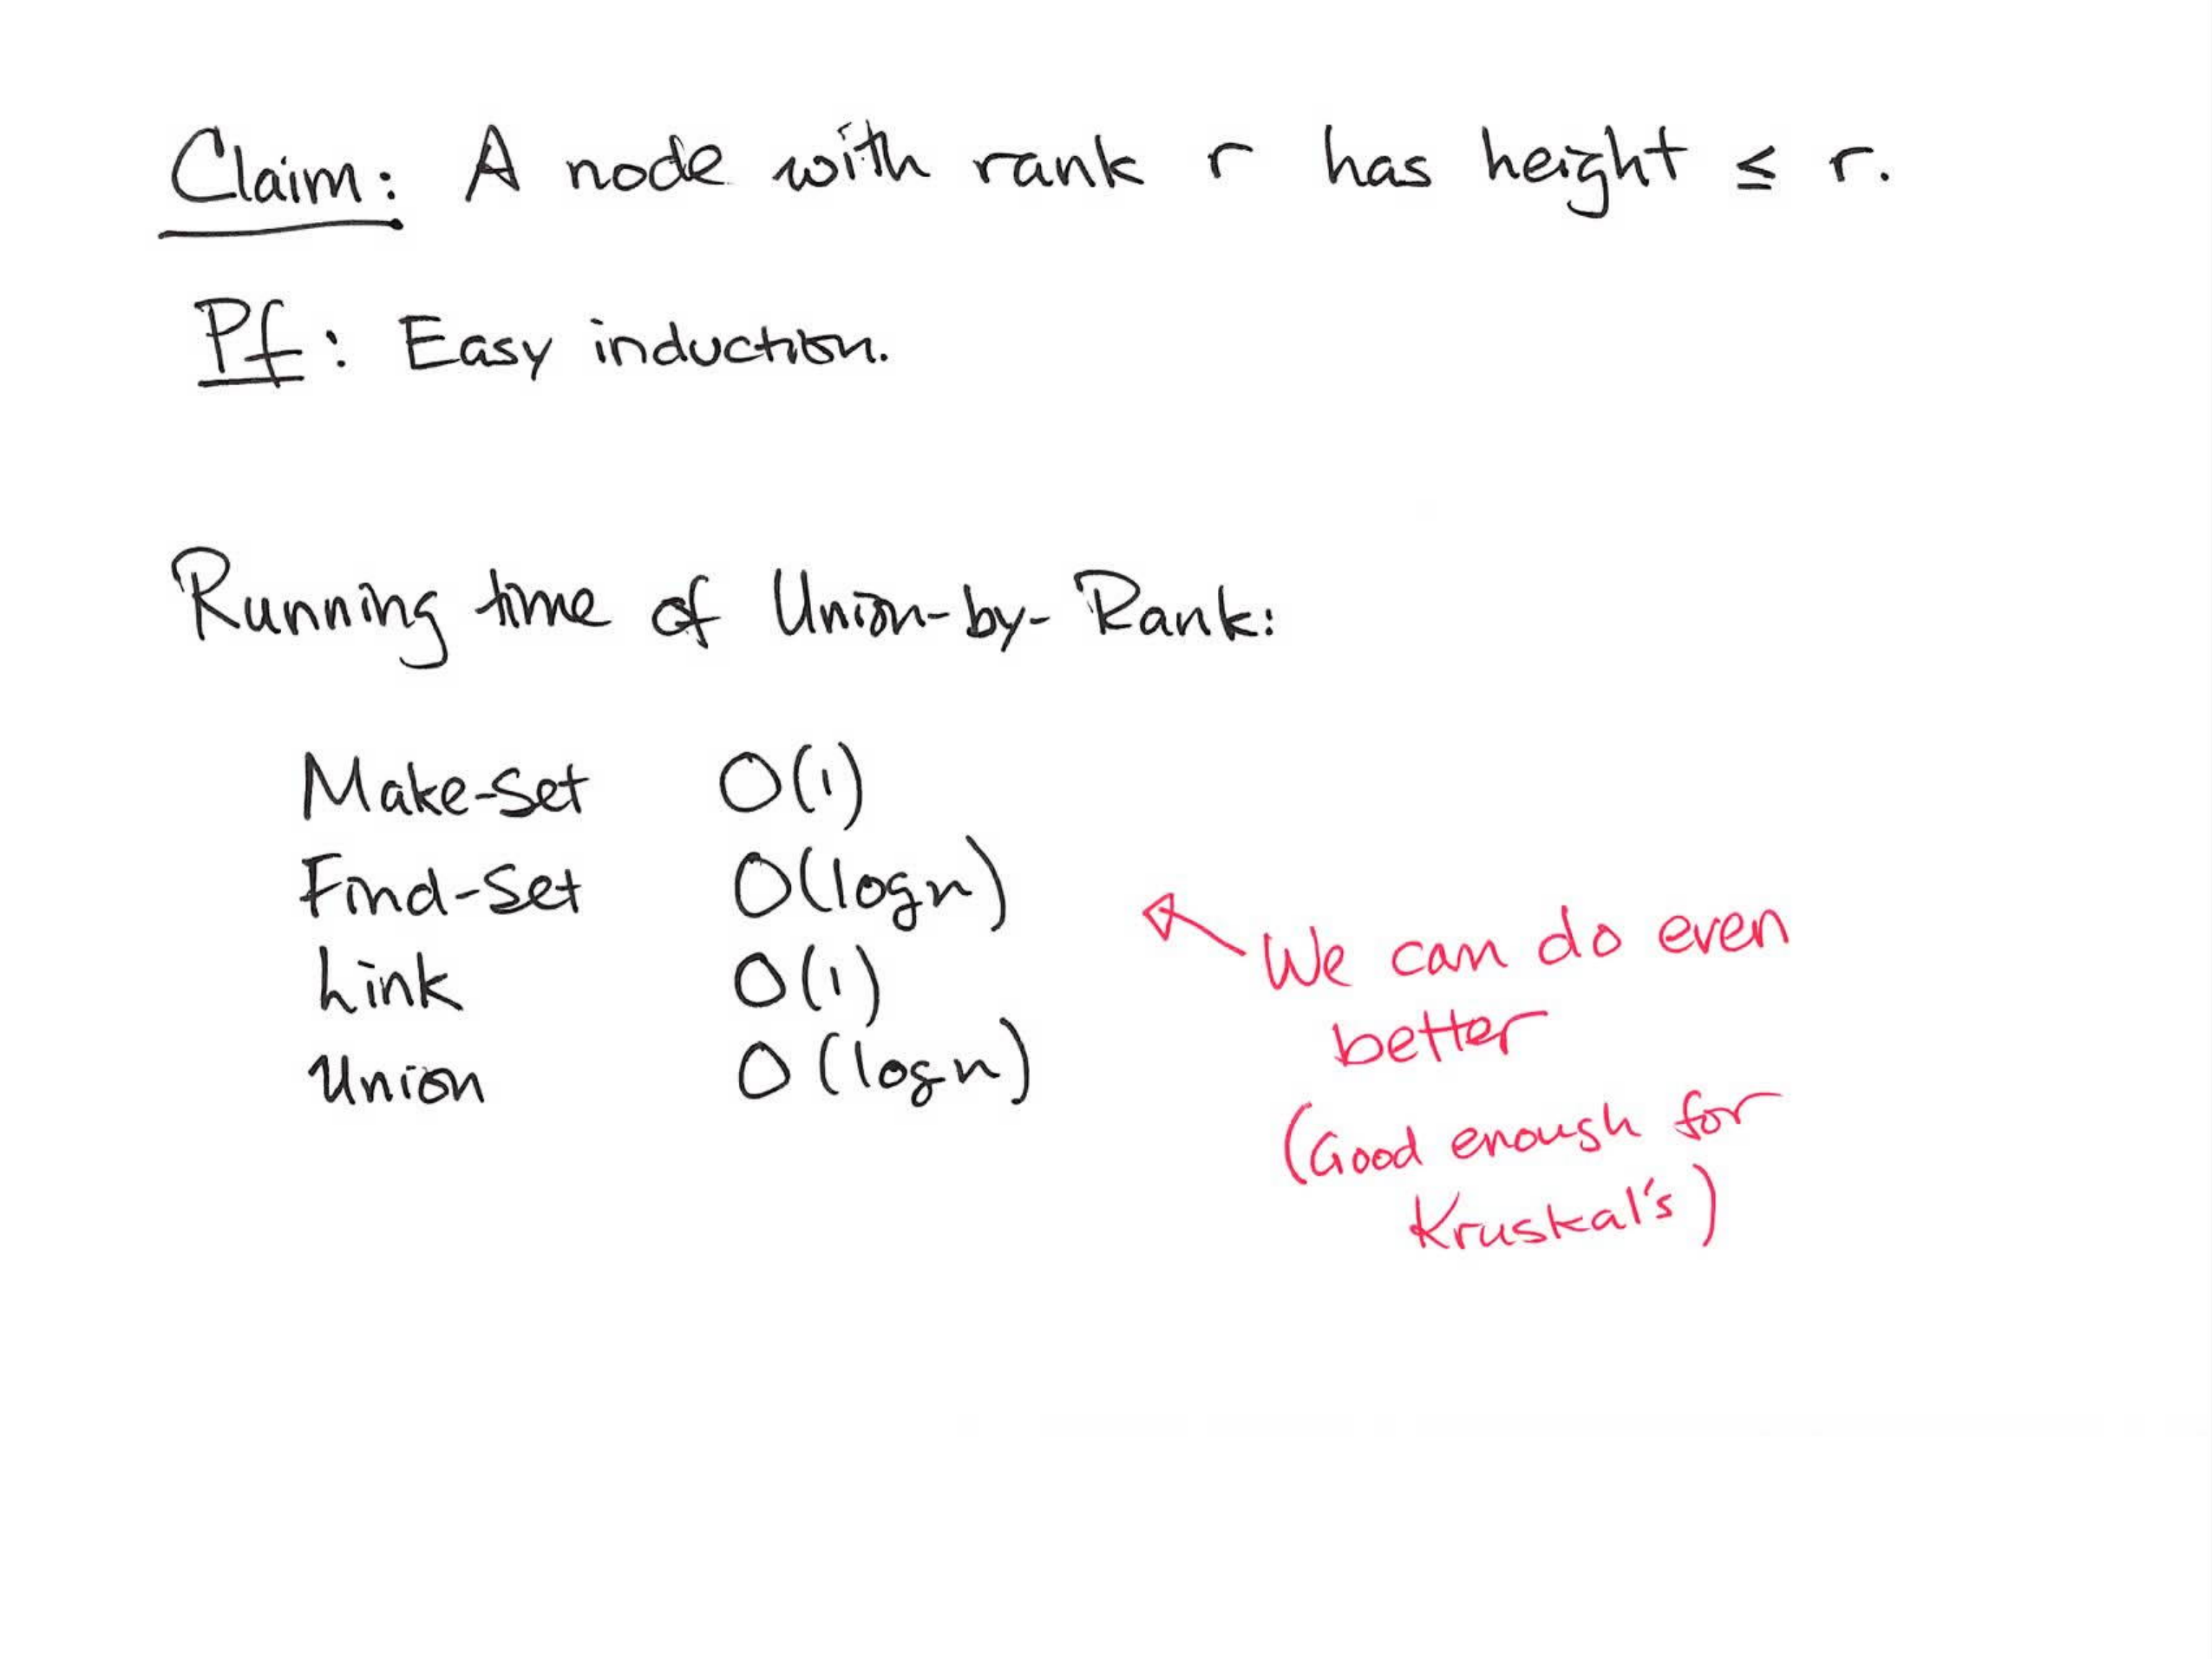 Claim: A node with rank r has height ≤ r.
Pf: Easy induction.
Running time of Union-by-Rank:
Make-Set O(1)
Find-Set O(log n)
Link O(1)
Union O(log n)
We can do even
better
(Good enough for
Kruskal's)